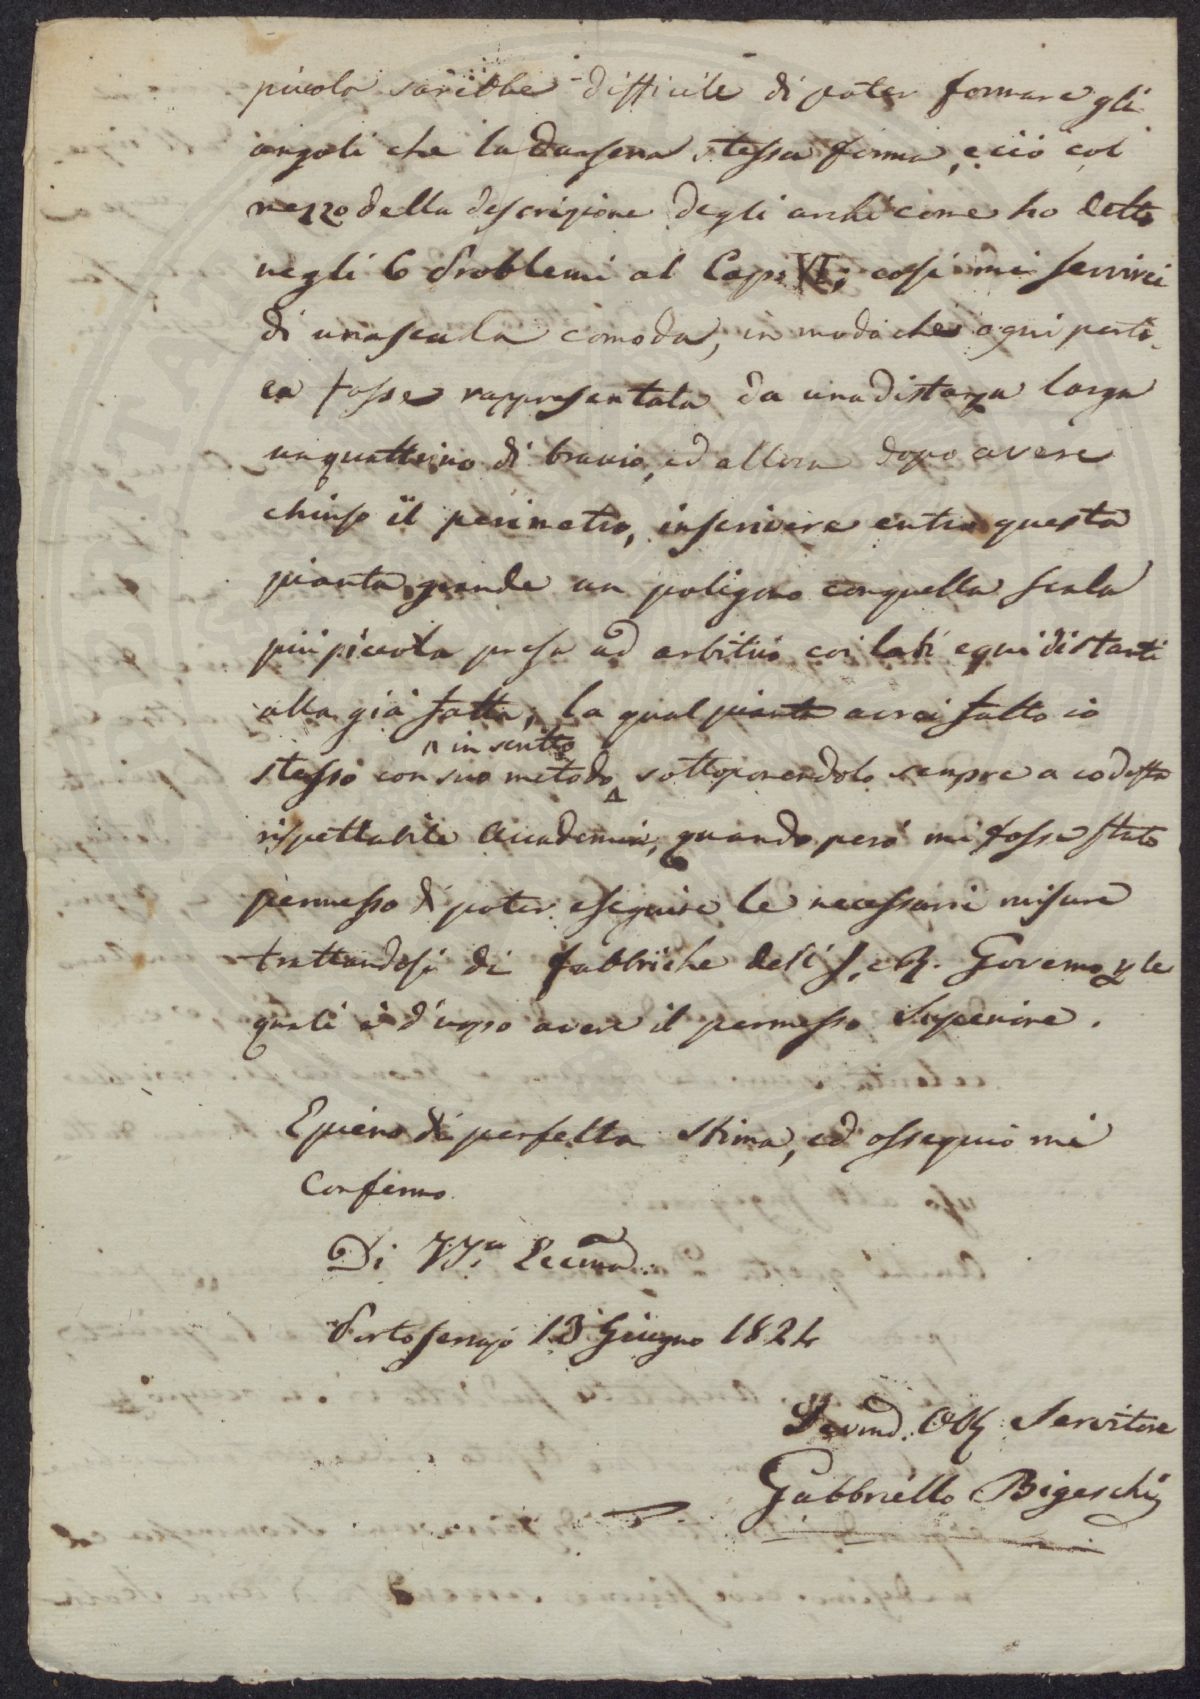 piccola sarebbe difficile di poter formare gli
angoli che la darsena stessa forma, e ciò col
mezzo della descrizione degli archi come ho detto
negli 6 Problemi al Cap: VI; così mi servirei
di una scala comoda, in modo che ogni perti-
ca fosse rappresentata da una distanza larga
un quattrino di braccio, ed allora dopo avere
chiuso il perimetro, inscrivere entro questa
pianta grande un poligono con quella scala
più piccola presa ad arbitrio coi lati equidistanti
alla già fatta; la qual pianta avrei fatto io
inscritto
stesso con suo metodo sottoponendolo sempre a codesta
rispettabile Accademia, quando però mi fosse stato
permesso di poter eseguire le necessarie misure
trattandosi di fabbriche dell'I. e R. Governo le
quali è d'uopo avere il permesso Superiore.
E pieno di perfetta stima, ed ossequio mi
Confermo
Di VS.a Eccma:
Portoferrajo 13 Giugno 1824
Devmo. Obb Servitore
Gabbriello Bigeschi